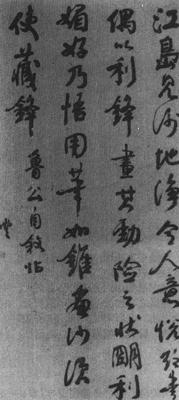 江島見沙地淨令人意悅欲書
偶以利鋒畫其勁險之狀明利
媚好乃悟用筆如錐畫沙須
使藏鋒 魯公自敘帖